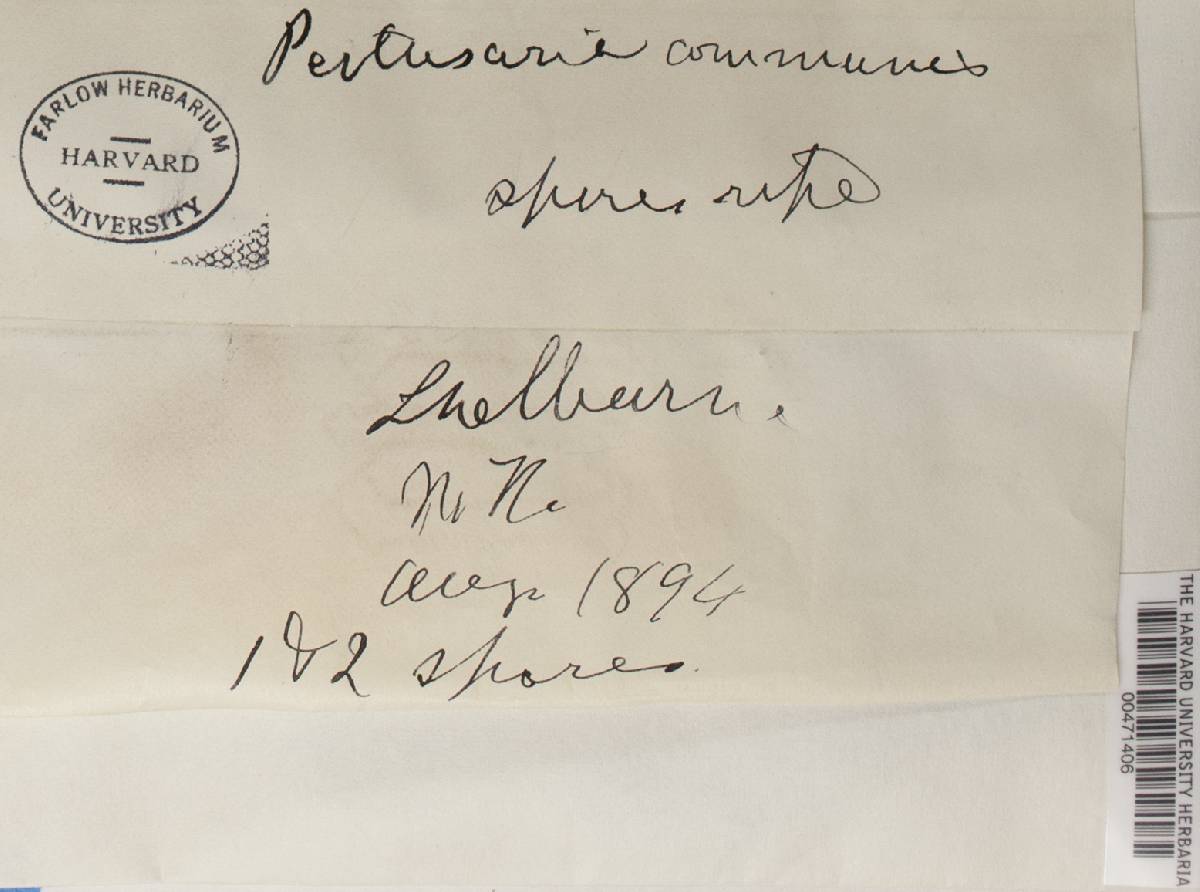 Pertusaria communis
FARLOW HERBARIUM
HARVARD
UNIVERSITY
spores ripe
Shelburne
N. H.
Aug. 1894
1 & 2 spores.
THE HARVARD UNIVERSITY HERBARIA
00471406